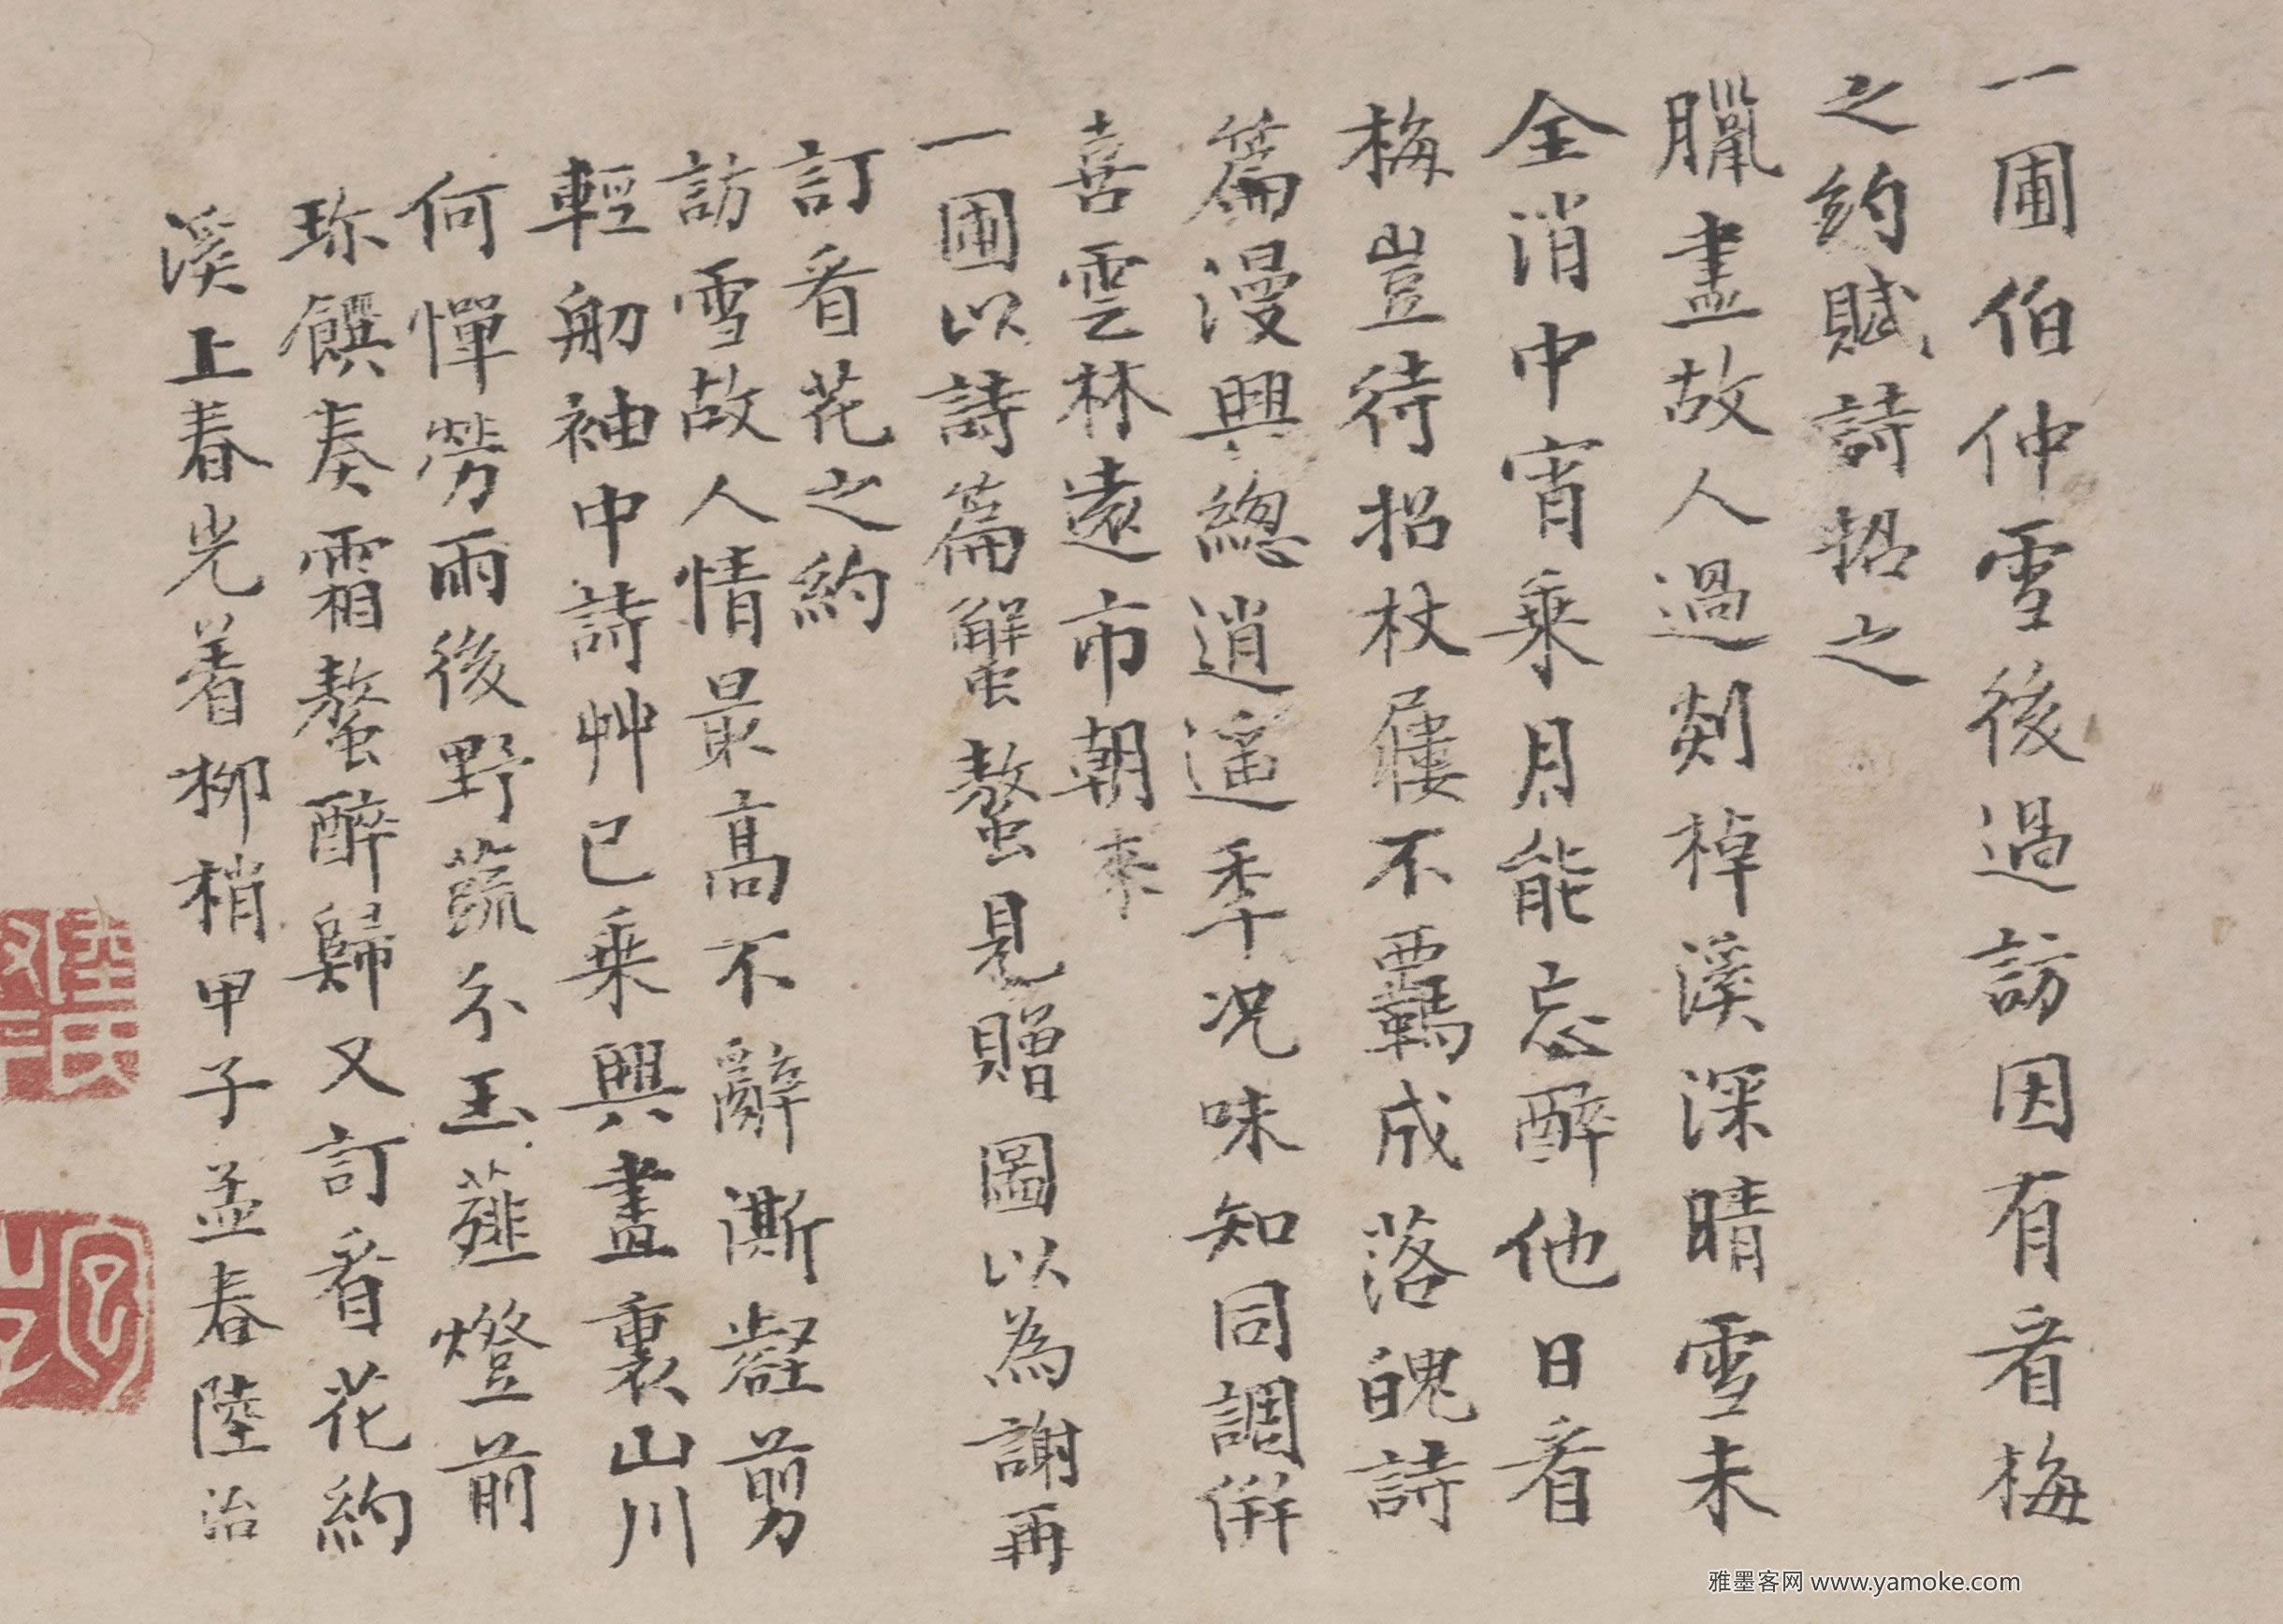 一圃伯仲雪後過訪因有看梅
之約賦詩招之
臘盡故人過剡棹溪深晴雪未
全消中宵乘月能忘醉他日看
梅豈待招杖屨不羈成落魄詩
篇漫興總逍遥季况味知同調併
喜雲林遠市朝 来
一圃以詩篇蟹螯見贈圖以為謝再
訂看花之約
訪雪故人情最高不辭澌壑剪
輕舠袖中詩艸已乘興畫裏山川
何憚勞雨後野蔬分玉薤燈前
珎饌奏霜螯醉歸又訂看花約
溪上春光着柳梢甲子孟春陸治
雅墨客网 www.yamoke.com